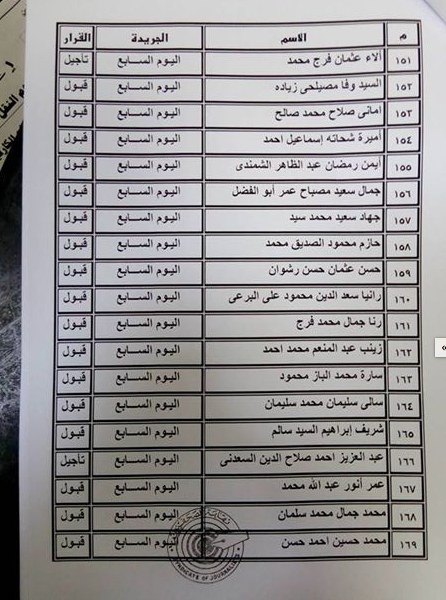 م الاسم الجريدة القرار
١٥١ آلاء عثمان فرج محمد اليوم السابع تأجيل
١٥٢ السيد وفا مصيلحى زياده اليوم السابع قبول
١٥٣ امانى صلاح محمد صالح اليوم السابع قبول
١٥٤ أميرة شحاته إسماعيل احمد اليوم السابع قبول
١٥٥ أيمن رمضان عبد الظاهر الشمندى اليوم السابع قبول
١٥٦ جمال سعيد مصباح عمر أبو الفضل اليوم السابع قبول
١٥٧ جهاد سعيد محمد سيد اليوم السابع قبول
١٥٨ حازم محمود الصديق محمد اليوم السابع قبول
١٥٩ حسن عثمان حسن رشوان اليوم السابع قبول
١٦٠ رانيا سعد الدين محمود على البرعى اليوم السابع قبول
١٦١ رنا جمال محمد فرج اليوم السابع قبول
١٦٢ زينب عبد المنعم محمد احمد اليوم السابع قبول
١٦٣ سارة محمد الباز محمود اليوم السابع قبول
١٦٤ سالى سليمان محمد سليمان اليوم السابع قبول
١٦٥ شريف إبراهيم السيد سالم اليوم السابع قبول
١٦٦ عبد العزيز احمد صلاح الدين السعدنى اليوم السابع تأجيل
١٦٧ عمر أنور عبد الله محمد اليوم السابع قبول
١٦٨ محمد جمال محمد سلمان اليوم السابع قبول
١٦٩ محمد حسين احمد حسن اليوم السابع قبول
SYNDICATE OF JOURNALISTS